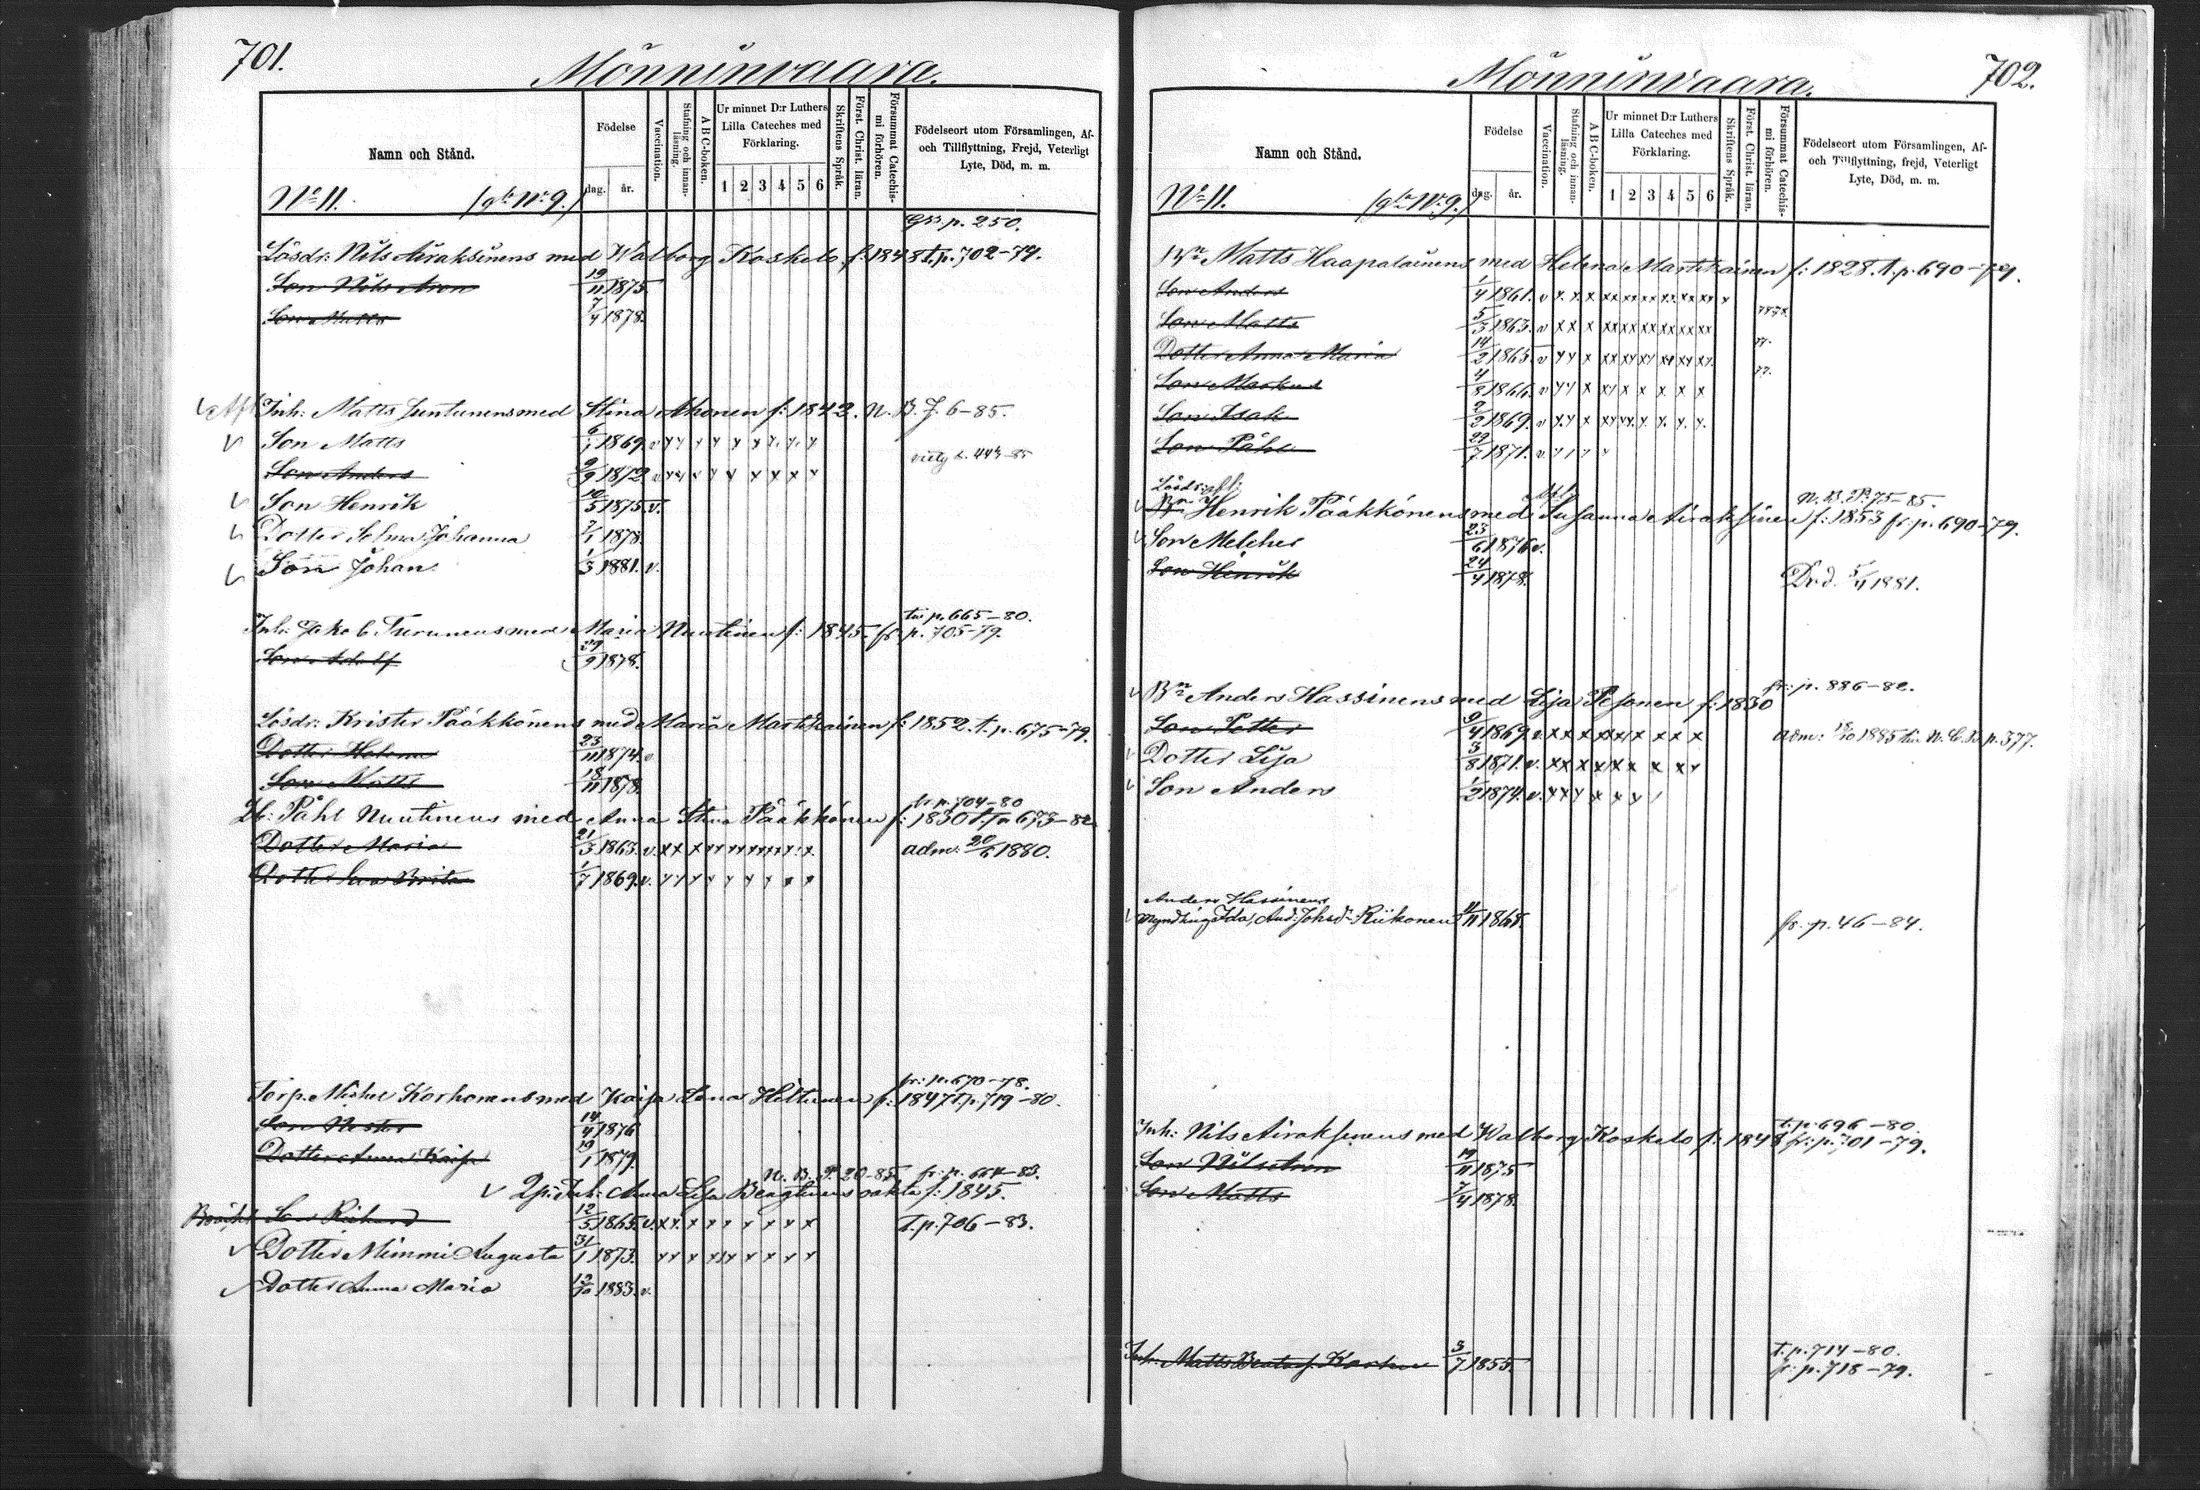 701.
Mönninvaara.
Namn och Stånd.
Födelse
dag.
år.
Vaccination.
Stafning och innan-
läsning.
A B C-boken.
Ur minnet D:r Luthers
Lilla Cateches med
Förklaring.
1 2 3 4 5 6
Skriftens Språk.
Först. Christ. läran.
Försummat Catechis-
mi förhören.
Födelseort utom Församlingen, Af-
och Tillflyttning, Frejd, Veterligt
Lyte, Död, m. m.
No 11. (gla No 9.)
p. 250.
Lösdr: Nils Airaksinens med Walborg Koskelo f: 1848 t.p. 702-79.
Son Nils Aron 19/11 1875.
Son Matts 7/4 1878.
Inh: Matts Juntunens med Stina Ahonen f: 1842. N. B. J. 6-85.
Son Matts 6/1 1869 v
Son Anders 9/9 1872 v
443-85
Son Henrik 10/5 1875 v.
Dotter Selma Johanna 7/1 1878.
Son Johan 1/3 1881. v.
t. p. 665-80.
Inh: Jakob Turunens med Maria Nuutinen f: 1845. fr. p. 705-79.
Son Adolf 29/9 1878.
Lösdr: Krister Pääkkönens med Maria Martikainen f: 1852. t. p. 675-79.
Dotter Helena 23/11 1874. v
Son Matts 18/11 1878.
fr p. 704-80
Påhl Nuutinens med Anna Stina Pääkkönen f: 1830 t. p 673-82
Dotter Maria 21/3 1863. v. adm: 20/6 1880.
Dotter Eva Brita 1/7 1869. v.
fr: p. 670-78.
Torp. Michel Korhonens med Kaisa Lena Hiltunen f: 1847 t. p. 719-80.
Son Nestor 14/4 1876
Dotter Anna Kaisa 19/1 1879.
N. B. P. 20-85. fr: p. 664-83.
Inh: Anna Lisa Bengtinens f: 1845.
Son Rickard 12/5 1865. v. t. p. 706-83.
Dotter Mimmi Augusta 31/1 1873.
Dotter Anna Maria 12/10 1883. v.
702.
Mönninvaara.
Namn och Stånd.
Födelse
dag.
år.
Vaccination.
Stafning och innan-
läsning.
A B C-boken.
Ur minnet D:r Luthers
Lilla Cateches med
Förklaring.
1 2 3 4 5 6
Skriftens Språk.
Först. Christ. läran.
Försummat Catechis-
mi förhören.
Födelseort utom Församlingen, Af-
och Tillflyttning, frejd, Veterligt
Lyte, Död, m. m.
No 11. (gla No 9.)
Bn Matts Haapalainens med Helena Martikainen f: 1828. t. p. 690-79.
Son Anders 1/4 1861. v
Son Matts 5/3 1863. v
Dotter Anna Maria 14/2 1865. v
77.
Son Markus 4/8 1866. v
77.
Son Isak 2/2 1869. v
Son Påhl 29/7 1871. v.
N. B. P. 75-85.
Henrik Pääkkönens med Susanna Airaksinen f: 1853 fr. p. 690-79.
Son Melcher 23/6 1876 v.
Son Henrik 24/4 1878. Dr. d. 5/4 1881.
fr: p. 886-82.
Bn Anders Hassinens med Lisa Pesonen f: 1830
Son Petter 9/4 1869. v. adm: 1885 p. 377.
Dotter Lisa 3/8 1871. v.
Son Anders 1/2 1874. v.
Anders Hassinens
Myndling Ida And: Johsdr Riikonen 11/11 1868. fr. p. 46-84.
t. p. 696-80.
Inh: Nils Airaksinens med Walborg Koskelo f: 1848 fr: p. 701-79.
Son Nils Aron 19/11 1875
Son Matts 7/4 1878.
t. p. 714-80.
Inh: Matts 3/7 1855. fr p. 718-79.